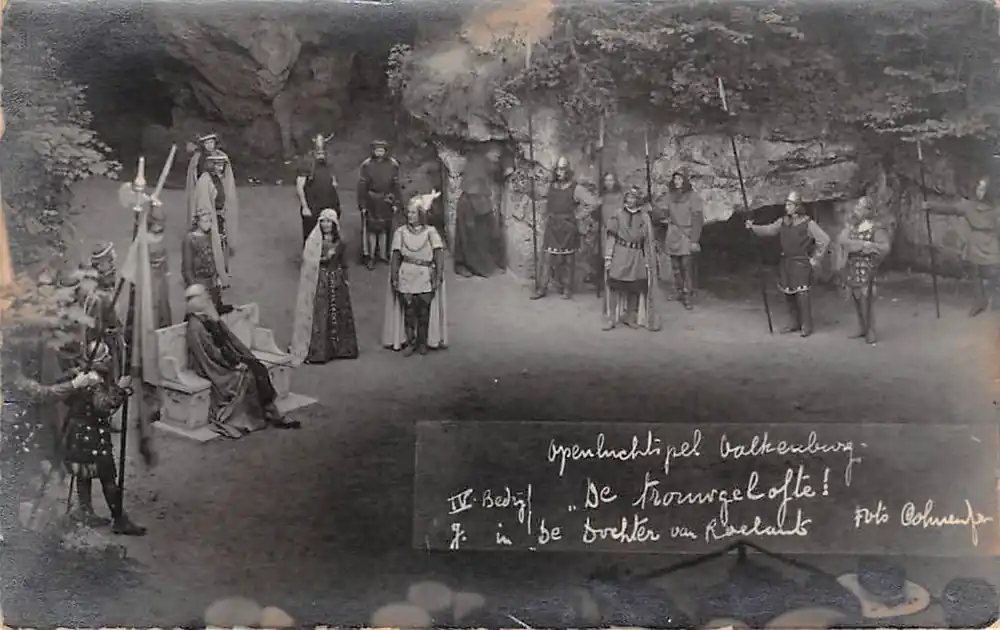 Openluchtspel Valkenburg.
IV. Bedrijf „De trouwgelofte!
in "De Dochter van Roelant Foto